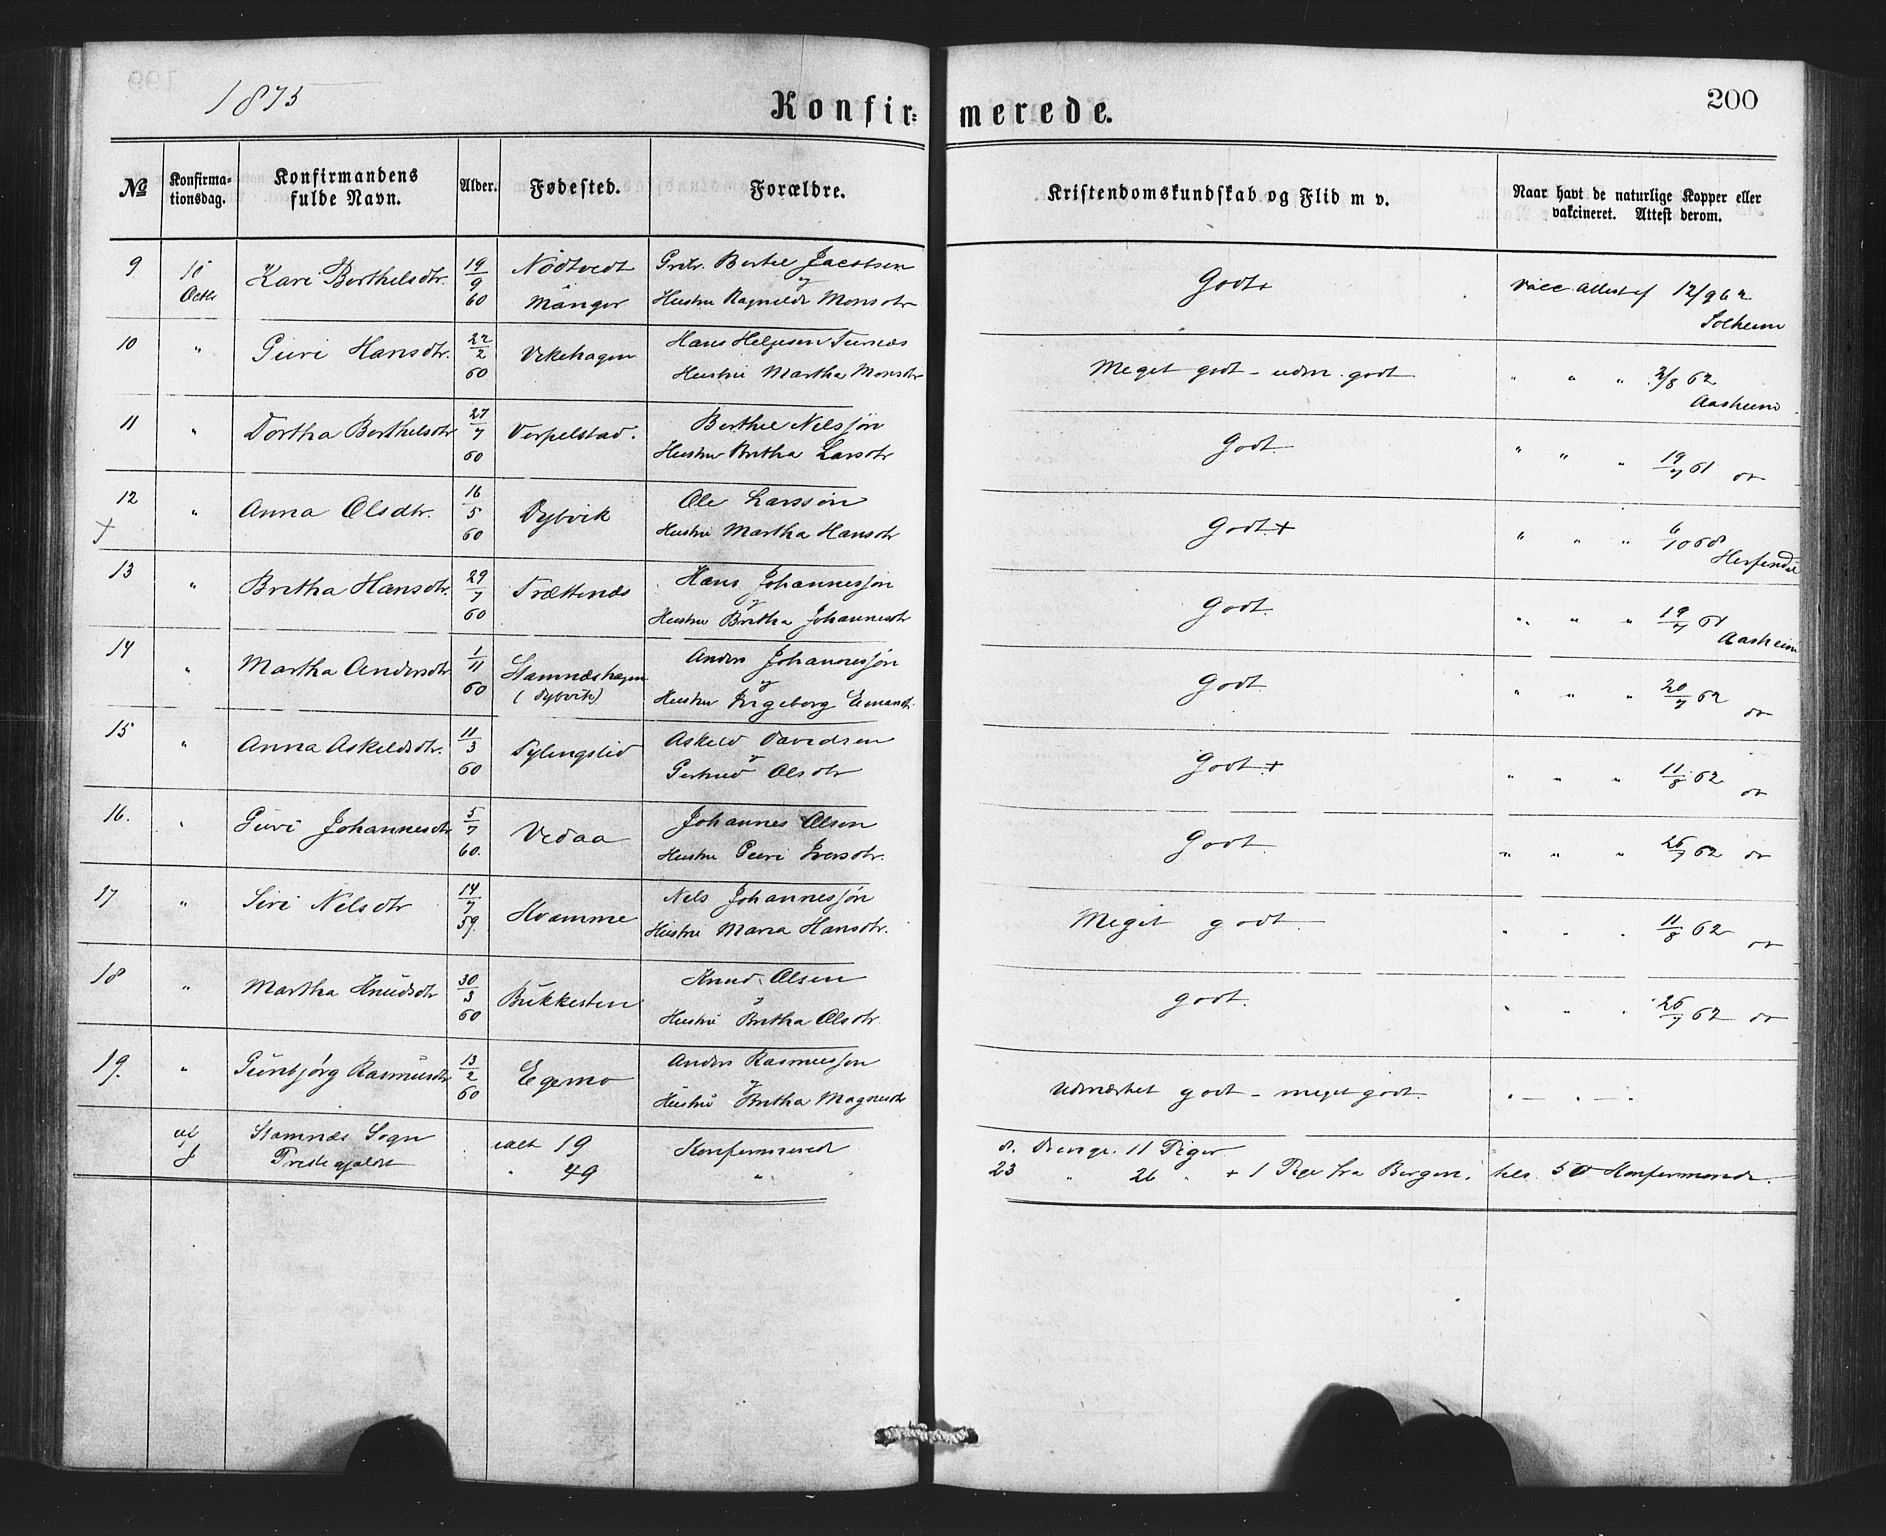 1875 Konfirmerede. 200
№ Konfirmationsdag. Konfirmandens fulde Navn. Alder. Fødested. Forældre. Kristendomskundskab og Flid m v. Naar havt de naturlige Kopper eller vakcineret. Attest derom.
9 10 Octbr Kari Berthelsdtr. 19/9 60 Nødtvedt Manger Bertel Jacobsen
og Hustru Ragnilde Monsdtr Godt+ vacc. attest af 12/9 62 Solheim
10 " Guri Hansdtr. 22/2 60 Vikehagen Hans Helgesen Turnæs
Hustru Martha Monsdtr Meget godt - udm. godt " " " 2/8 62 Aasheim
11 " Dortha Berthelsdtr 27/7 60 Verpelstad. Berthel Nilssøn
Hustru Britha Larsdtr Godt " " " 19/7 61 do
12 + " Anna Olsdtr. 16/5 60 Dybvik Ole Larssøn
Hustru Martha Hansdtr Godt+ " " " 6/10 68 Herfindal
13 " Britha Hansdtr. 29/7 60 Trættenæs Hans Johannessøn
og Hustru Britha Johannesdtr Godt " " " 19/7 61 Aasheim
14 " Martha Andersdtr 1/11 60 Stamnæshagen (Dybvik) Anders Johannessøn
og Hustru Ingeborg Godt " " " 20/7 62 do
15 " Anna Askeldsdtr. 11/3 60 Fylingslid Askeld Davidsen
og Gertrud Olsdtr Godt+ " " " 11/8 62 do
16. " Guri Johannesdtr 5/7 60. Vedaa Johannes Olsen
Hustru Guri Iversdtr. Godt " " " 26/7 62 do
17 " Siri Nilsdtr 14/7 59. Hvamme Nels Johannessøn
Hustru Maria Hansdtr. Meget godt " " " 11/8 62 do
18 " Martha Knudsdtr 30/3 60 Bukkesten Knud Olsen
og Hustru Britha Olsdtr. godt. " " " 26/7 62 do
19. " Gunbjørg Rasmusdtr 13/2 60 Egemo Anders Rasmussøn
og Hustru Britha Magnesdtr Udmærket godt - meget godt. " — " — "
af Stamnæs Sogn ialt 19 Konfirmerede 8. Drenge. 11 Piger
f Præstegjeldet " 49 " 23 " 26 " + 1 Pige fra Bergen. tils. 50 Konfirmerede.